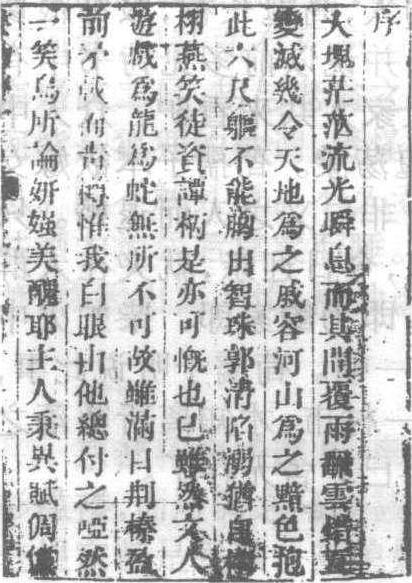 序
大塊茫茫流光瞬息而其間覆雨飜雲
變滅幾令天地爲之戚容河山爲之黯色
此六尺軀不能剖出智珠郭清陷溺猶
栩燕笑徒資譚柄是亦可慨也已雖然文人
遊戲爲龍爲蛇無所不可故雖滿目荆榛盈
前矛戟而肯傳惟我白眼由他總付之啞然
一笑烏所論妍媸美醜耶主人秉異賦倜